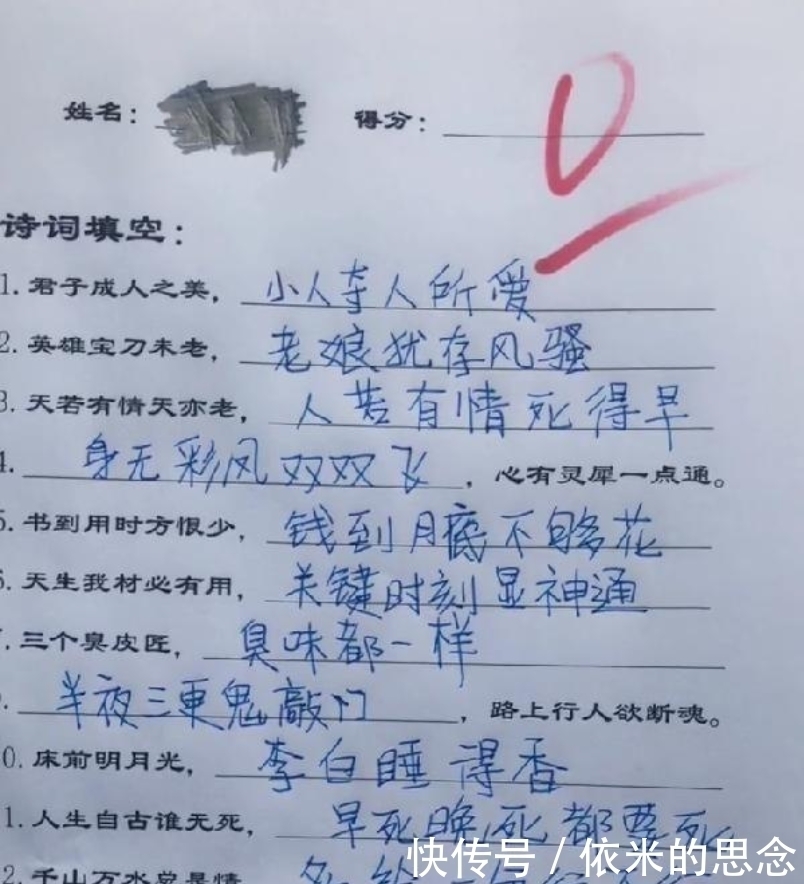 姓名： 得分： 0
诗词填空：
1.君子成人之美，小人夺人所爱
2.英雄宝刀未老，老娘犹存风骚
3.天若有情天亦老，人若有情死得旱
4.身无彩凤双双飞，心有灵犀一点通。
5.书到用时方恨少，钱到月底不够花
6.天生我材必有用，关键时刻显神通
.三个臭皮匠，臭味都一样
.半夜三更鬼敲门，路上行人欲断魂。
0.床前明月光，李白睡得香
1.人生自古谁无死，早死晚死都要死
2.千山万水总是情
快传号 / 依米的思念